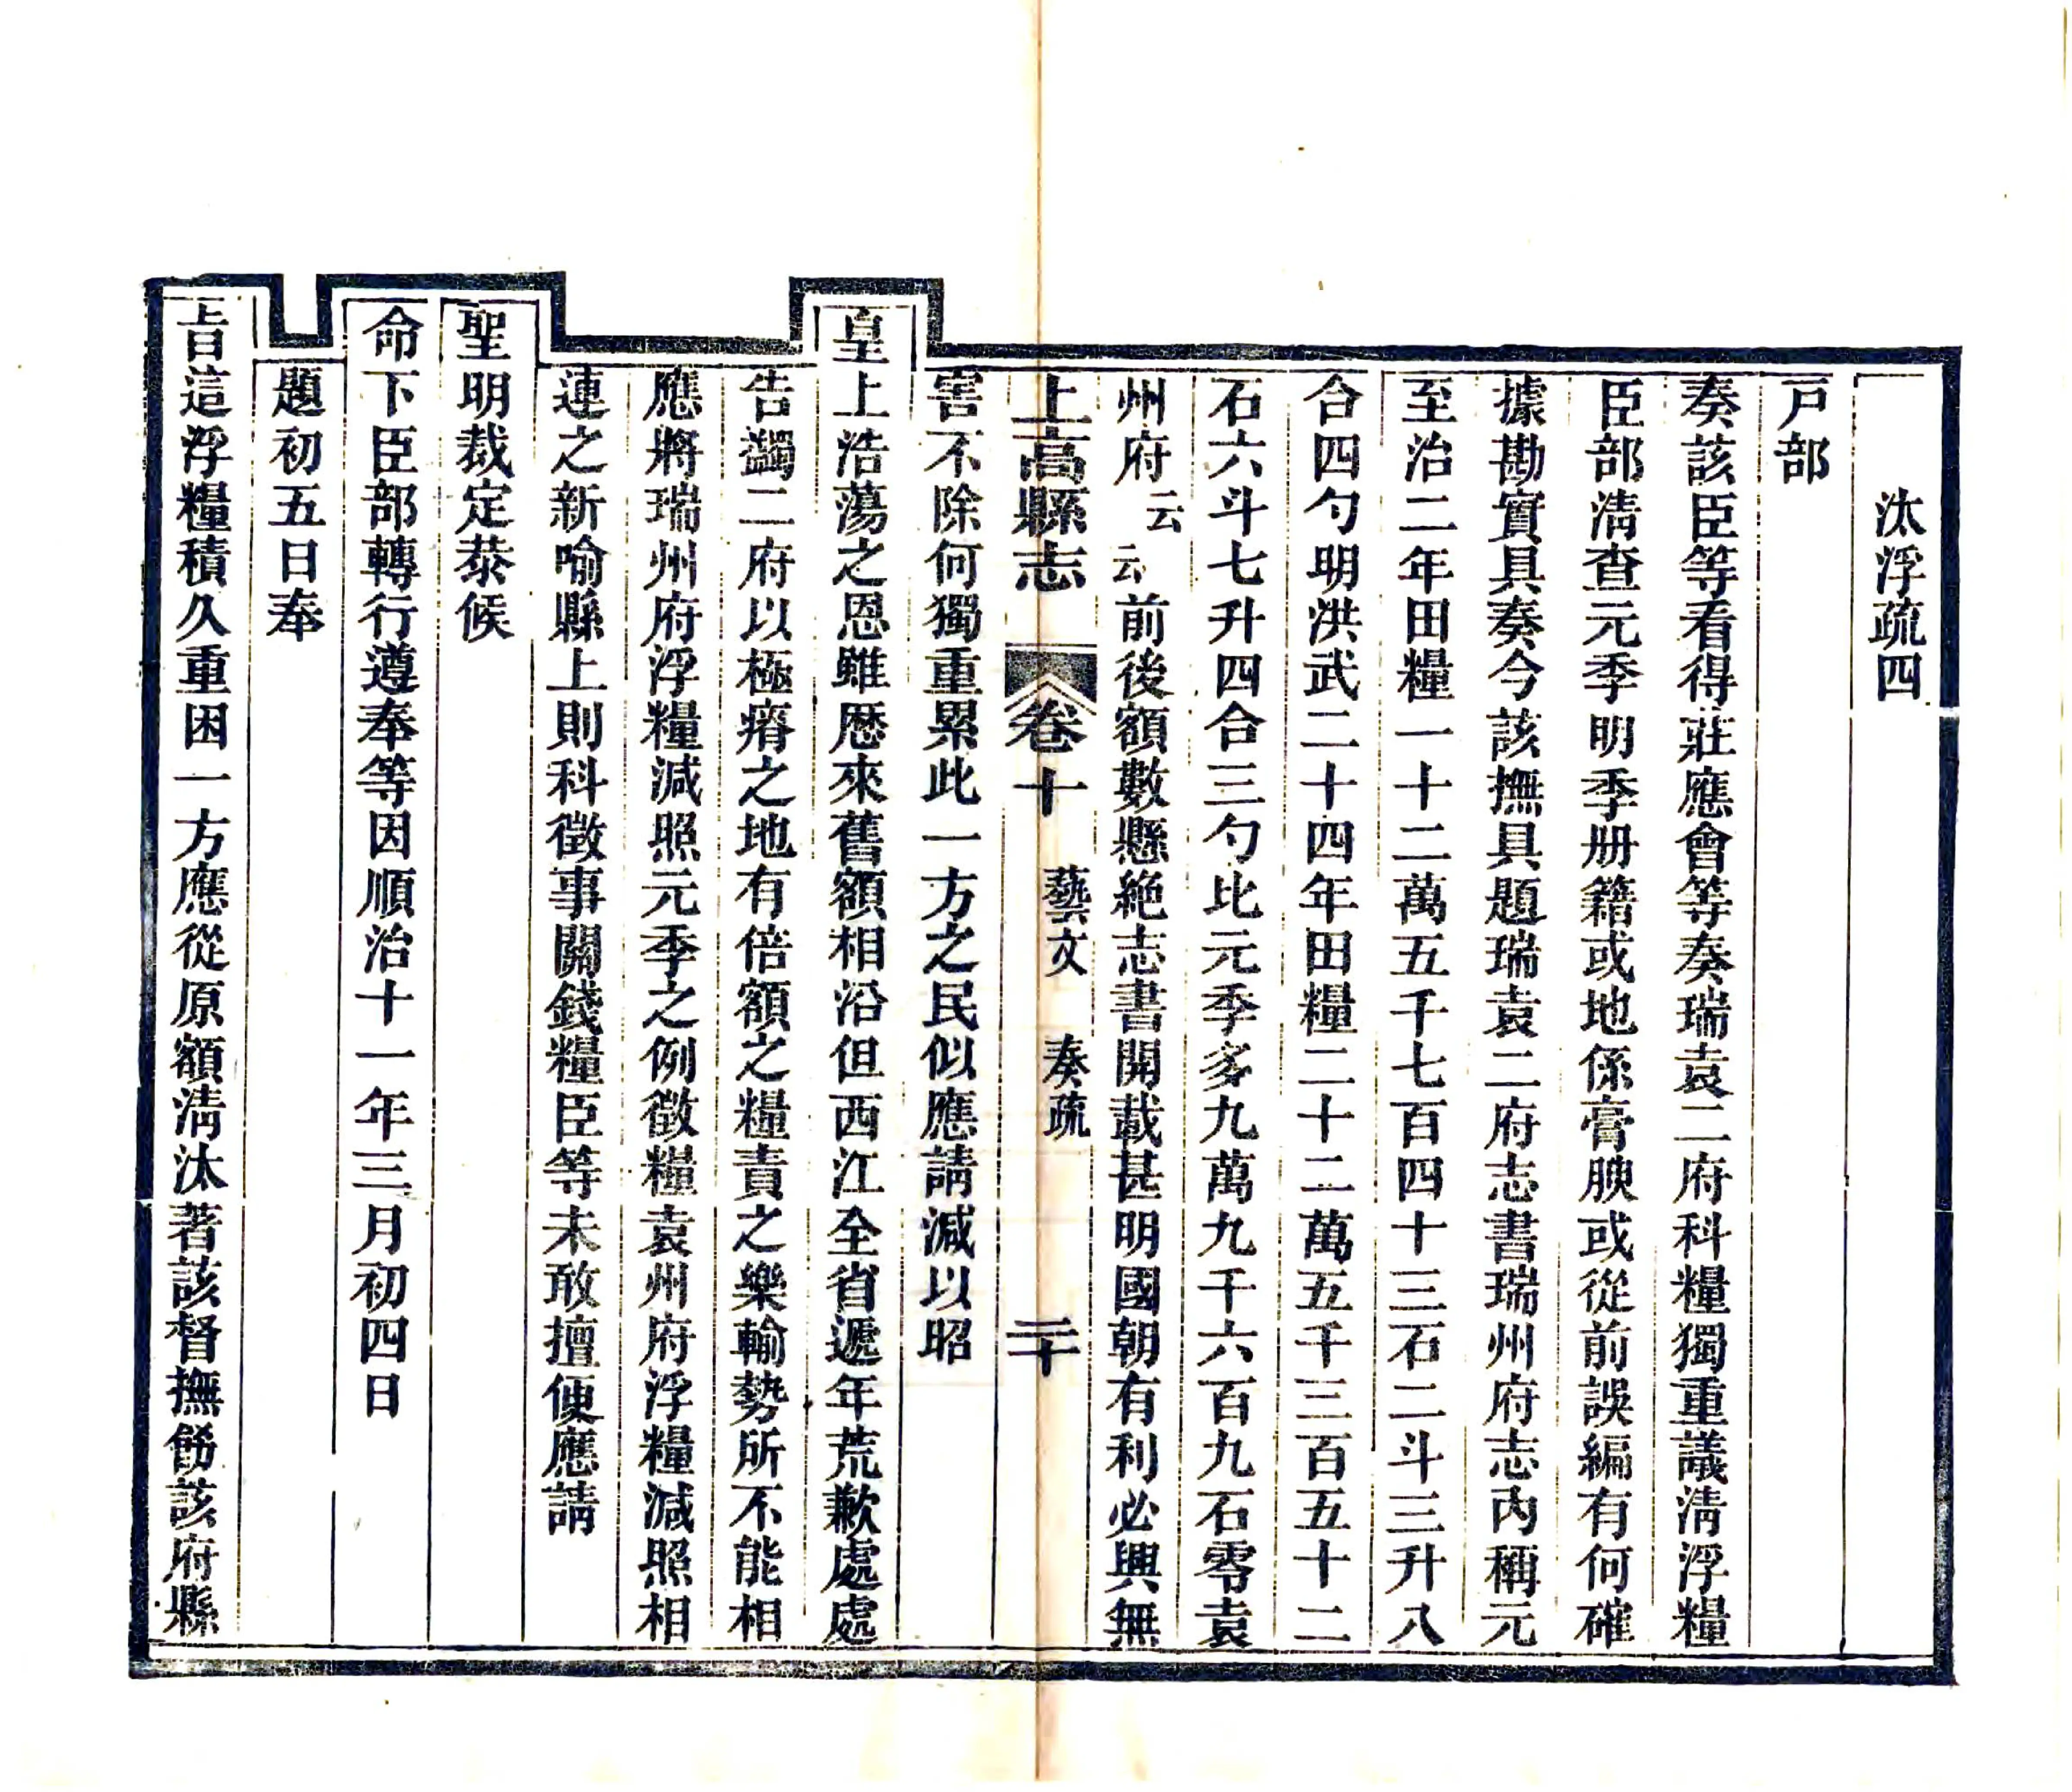 汰浮疏四
戸部
奏該臣等看得莊應會等奏瑞袁二府科糧獨重議淸浮糧
臣部淸查元季明季册籍或地係膏腴或從前誤編有何確
據勘實具奏今該撫具題瑞袁二府志書瑞州府志內稱元
至治二年田糧一十二萬五千七百四十三石二斗三升八
合四勺明洪武二十四年田糧二十二萬五千三百五十二
石六斗七升四合三勺比元季多九萬九千六百九石零袁
州府云云前後額數懸絶志書開載甚明國朝有利必興無
上高縣志 卷十 藝文 奏疏 二十
害不除何獨重累此一方之民似應請減以昭
皇上浩蕩之恩雖歷來舊額相沿但西江全省遞年荒歉處處
告蠲二府以極瘠之地有倍額之糧責之樂輸勢所不能相
應將瑞州府浮糧減照元季之例徵糧袁州府浮糧減照相
連之新喻縣上則科徵事關錢糧臣等未敢擅便應請
聖明裁定恭候
命下臣部轉行遵奉等因順治十一年三月初四日
題初五日奉
旨這浮糧積久重困一方應從原額淸汰著該督撫飭該府縣